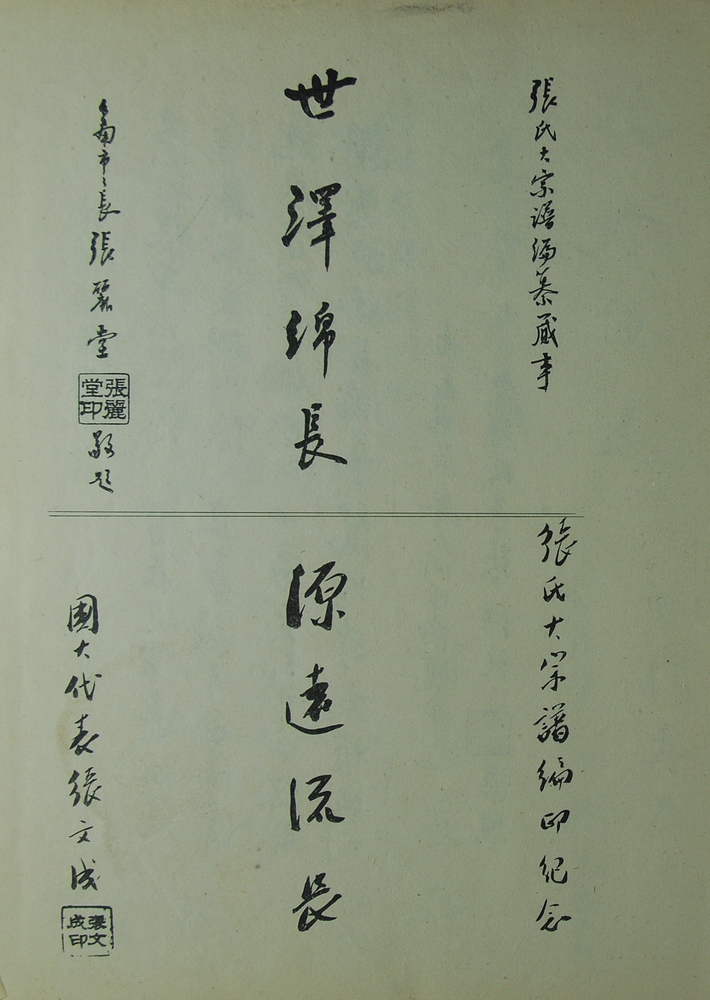 張氏大宗譜編纂蕆事
世澤綿長
台南市々長張麗堂
張麗
堂印
敬題
張氏大宗譜編印紀念
源遠流長
國大代表張文成
張文
成印